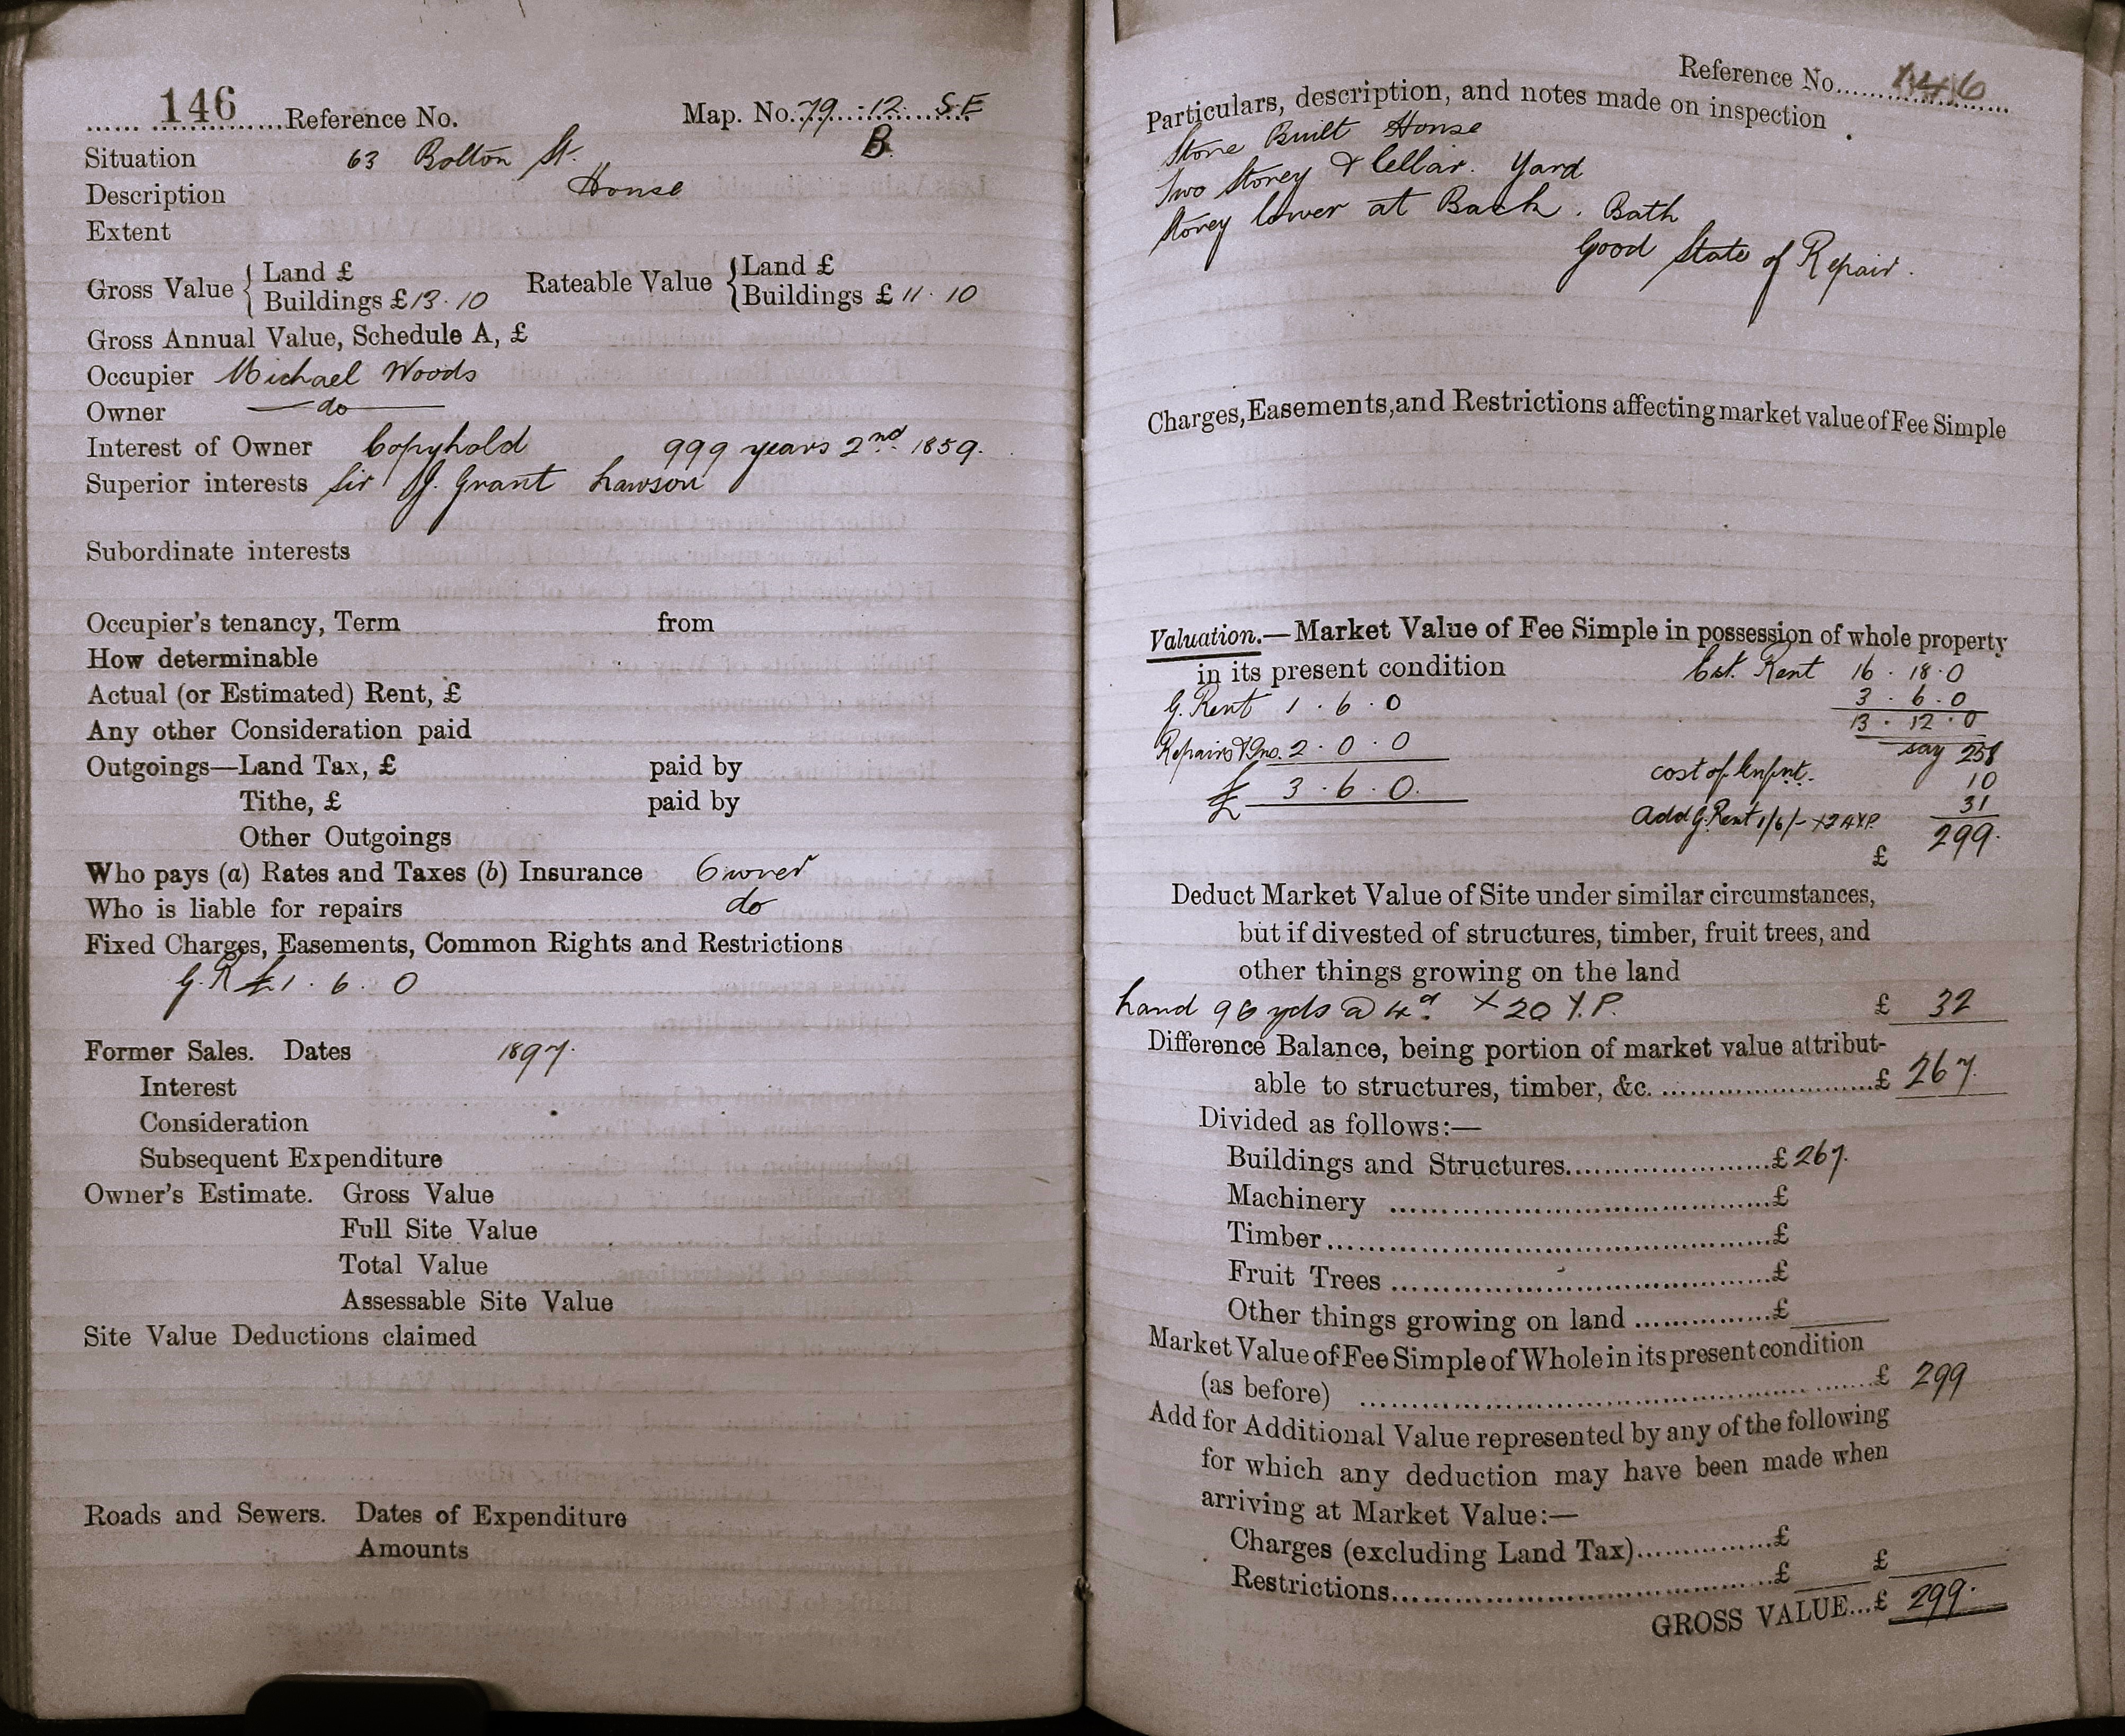 146 Reference No. Map. No. 79 : 12. S.E
B.
Situation 63 Bolton St.
Description House
Extent
Gross Value { Land £ Rateable Value { Land £
Buildings £13. 10 Buildings £ 11. 10
Gross Annual Value, Schedule A, £
Occupier Michael Woods
Owner do
Interest of Owner Copyhold 999 years 2nd 1859.
Superior interests Sir J. Grant Lawson
Subordinate interests
Occupier's tenancy, Term from
How determinable
Actual (or Estimated) Rent, £
Any other Consideration paid
Outgoings—Land Tax, £ paid by
Tithe, £ paid by
Other Outgoings
Who pays (a) Rates and Taxes (b) Insurance Owner
Who is liable for repairs do
Fixed Charges, Easements, Common Rights and Restrictions
G.R £1 . 6 . 0
Former Sales. Dates 1897.
Interest
Consideration
Subsequent Expenditure
Owner's Estimate. Gross Value
Full Site Value
Total Value
Assessable Site Value
Site Value Deductions claimed
Roads and Sewers. Dates of Expenditure
Amounts
Reference No. 146
Particulars, description, and notes made on inspection
Stone Built House
Two Storey & Cellar. Yard
Storey lower at Back. Bath
Good State of Repair.
Charges, Easements, and Restrictions affecting market value of Fee Simple
Valuation.—Market Value of Fee Simple in possession of whole property
in its present condition Est. Rent 16 . 18 . 0
G. Rent 1 . 6 . 0 3 . 6 . 0
13 . 12 . 0
Repairs & Ins. 2 . 0 . 0 say 258
£ 3 . 6 . 0. cost of Enfnt. 10
Add G. Rent 1/6/- × 24 Y.P. 31
£ 299.
Deduct Market Value of Site under similar circumstances,
but if divested of structures, timber, fruit trees, and
other things growing on the land
Land 96 yds @ 4d. × 20 Y.P. £ 32
Difference Balance, being portion of market value attribut-
able to structures, timber, &c. £ 267.
Divided as follows:—
Buildings and Structures £ 267.
Machinery £
Timber £
Fruit Trees £
Other things growing on land £
Market Value of Fee Simple of Whole in its present condition
(as before) £ 299
Add for Additional Value represented by any of the following
for which any deduction may have been made when
arriving at Market Value:—
Charges (excluding Land Tax) £
Restrictions £ £
GROSS VALUE...£ 299.